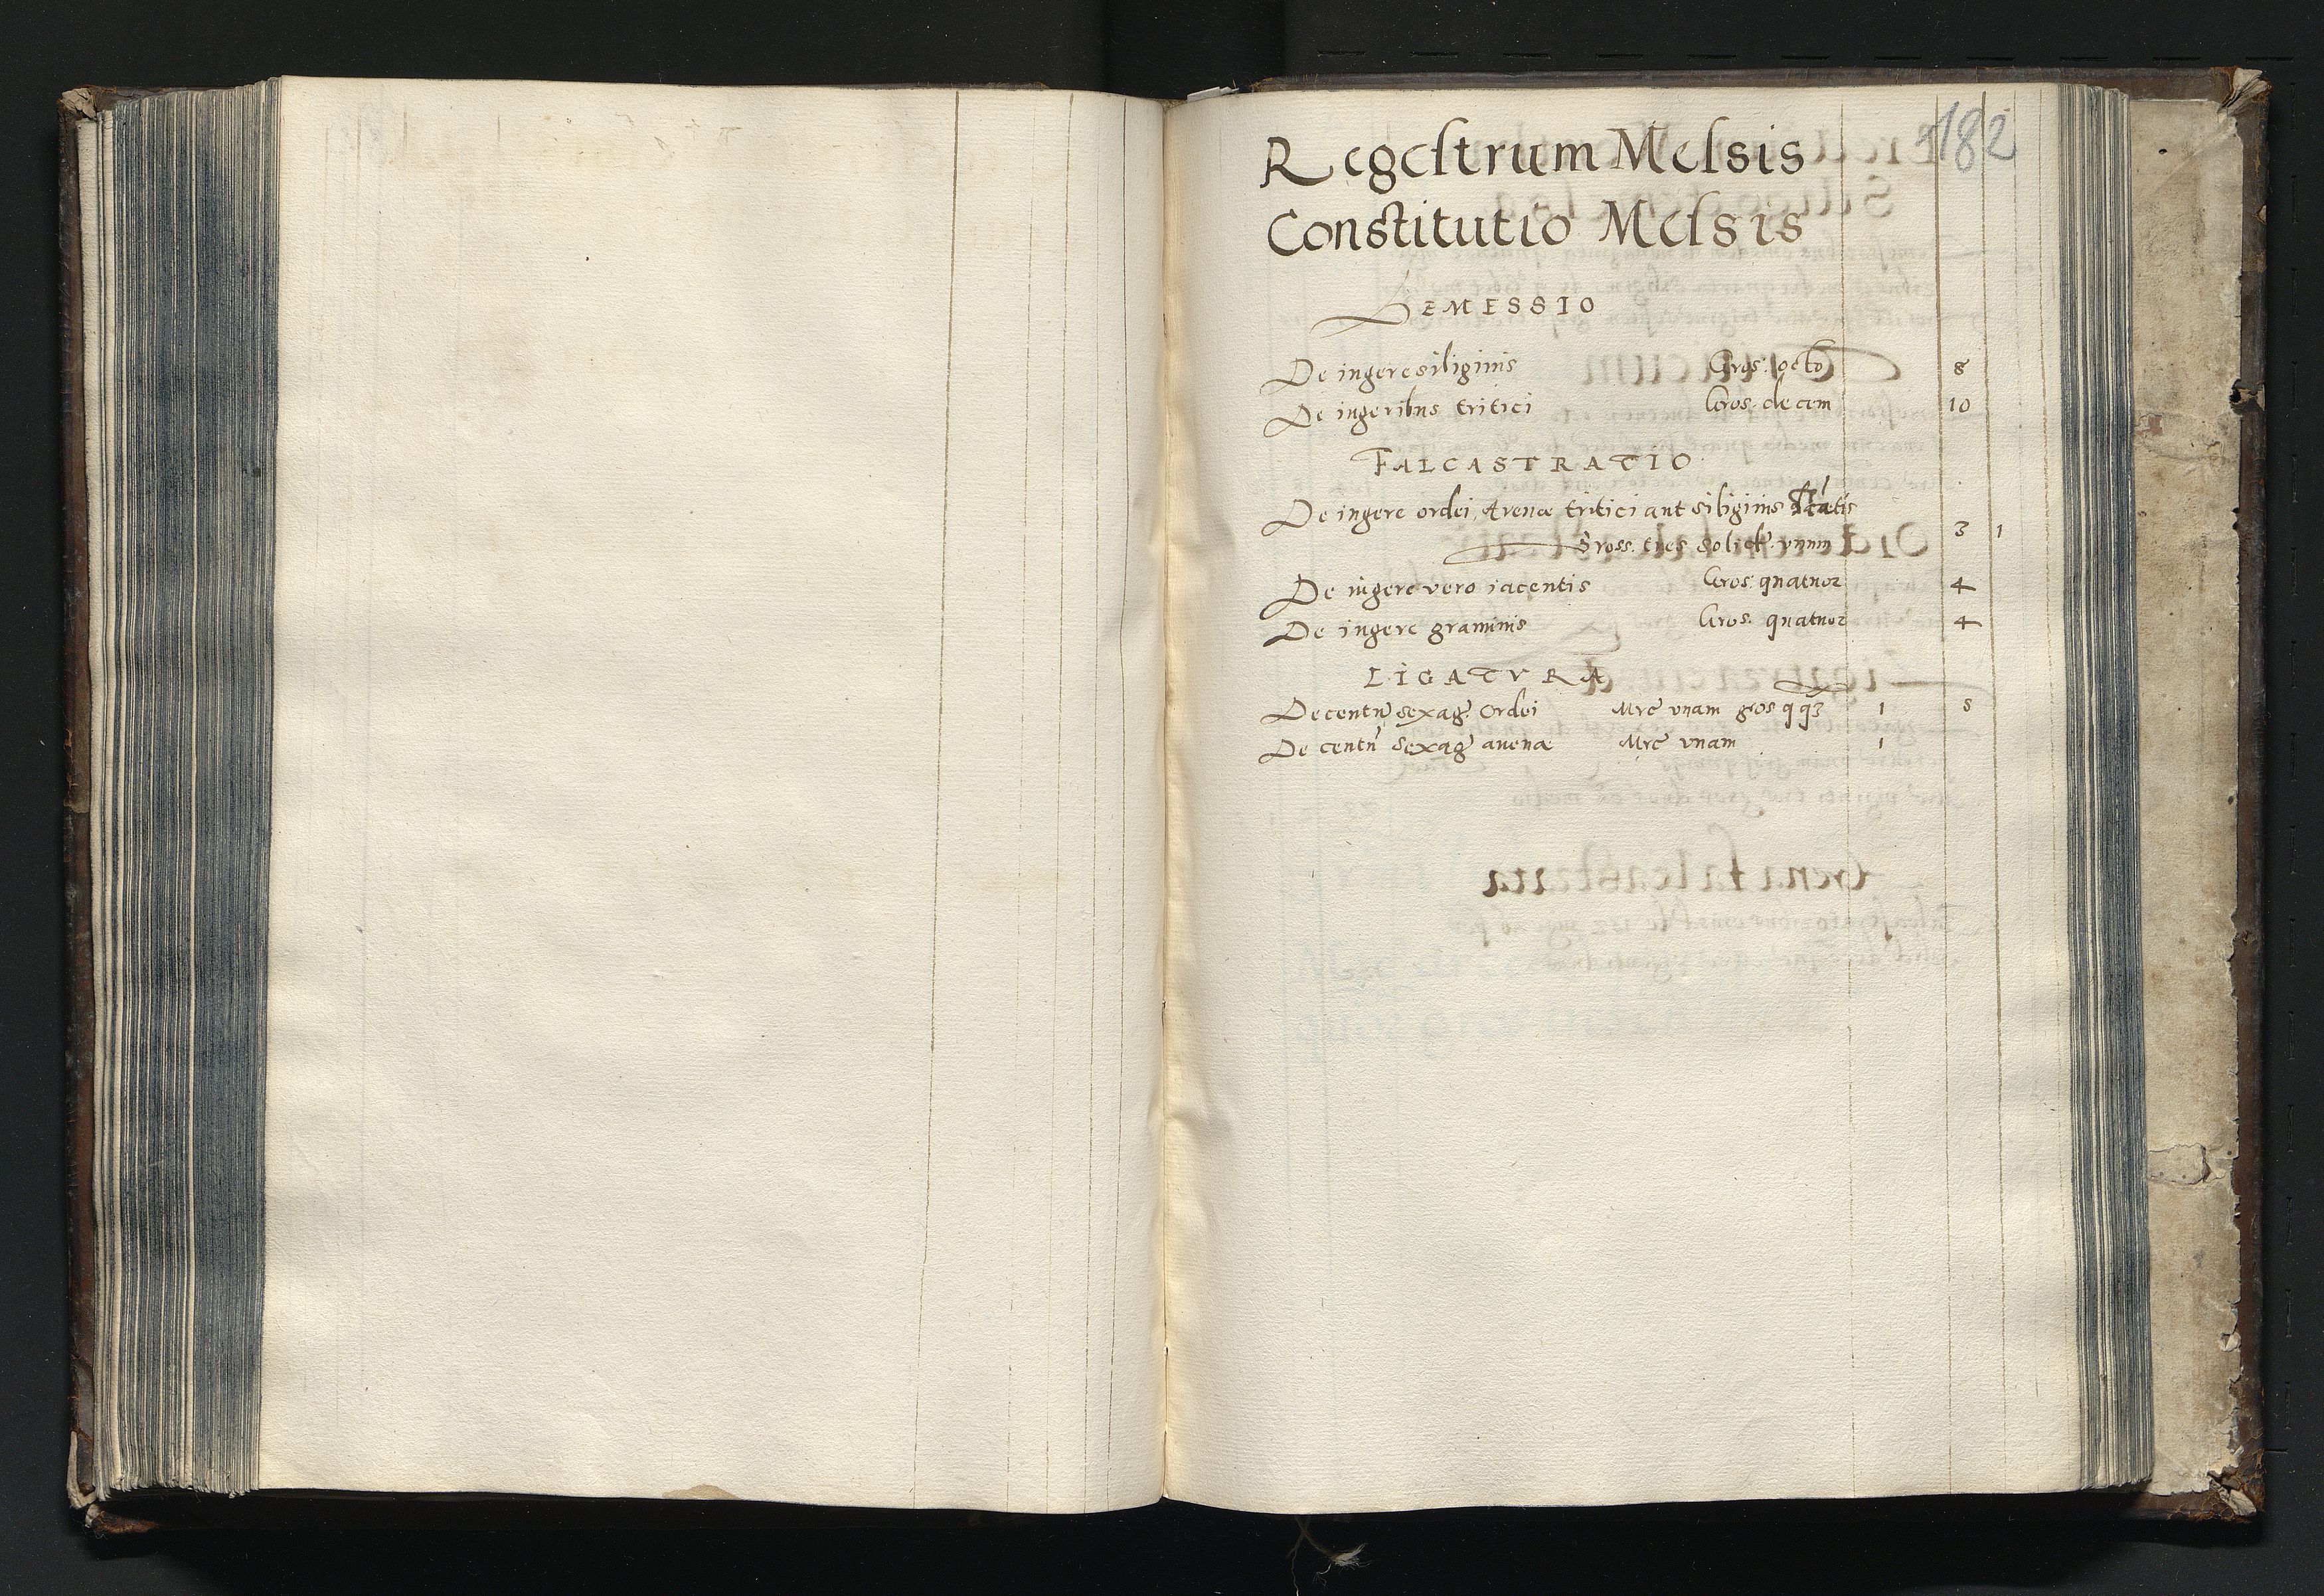 182
Regestrum Messis
Constitutio Messis
DEMESSIO
De iugere siliginis Gros. octo 8
De iugeribus tritici Gros. decem 10
FALCASTRATIO
De iugere ordei, Avenæ tritici aut siliginis statis
Gross. tres solid. vnum 3 1
De iugere vero iacentis Gros. quatuor 4
De iugere graminis Gros. quatuor 4
LIGATVRA
De centu sexag. Ordei Mrc vnam gros qq3 1 5
De centu sexag avenæ Mrc vnam 1